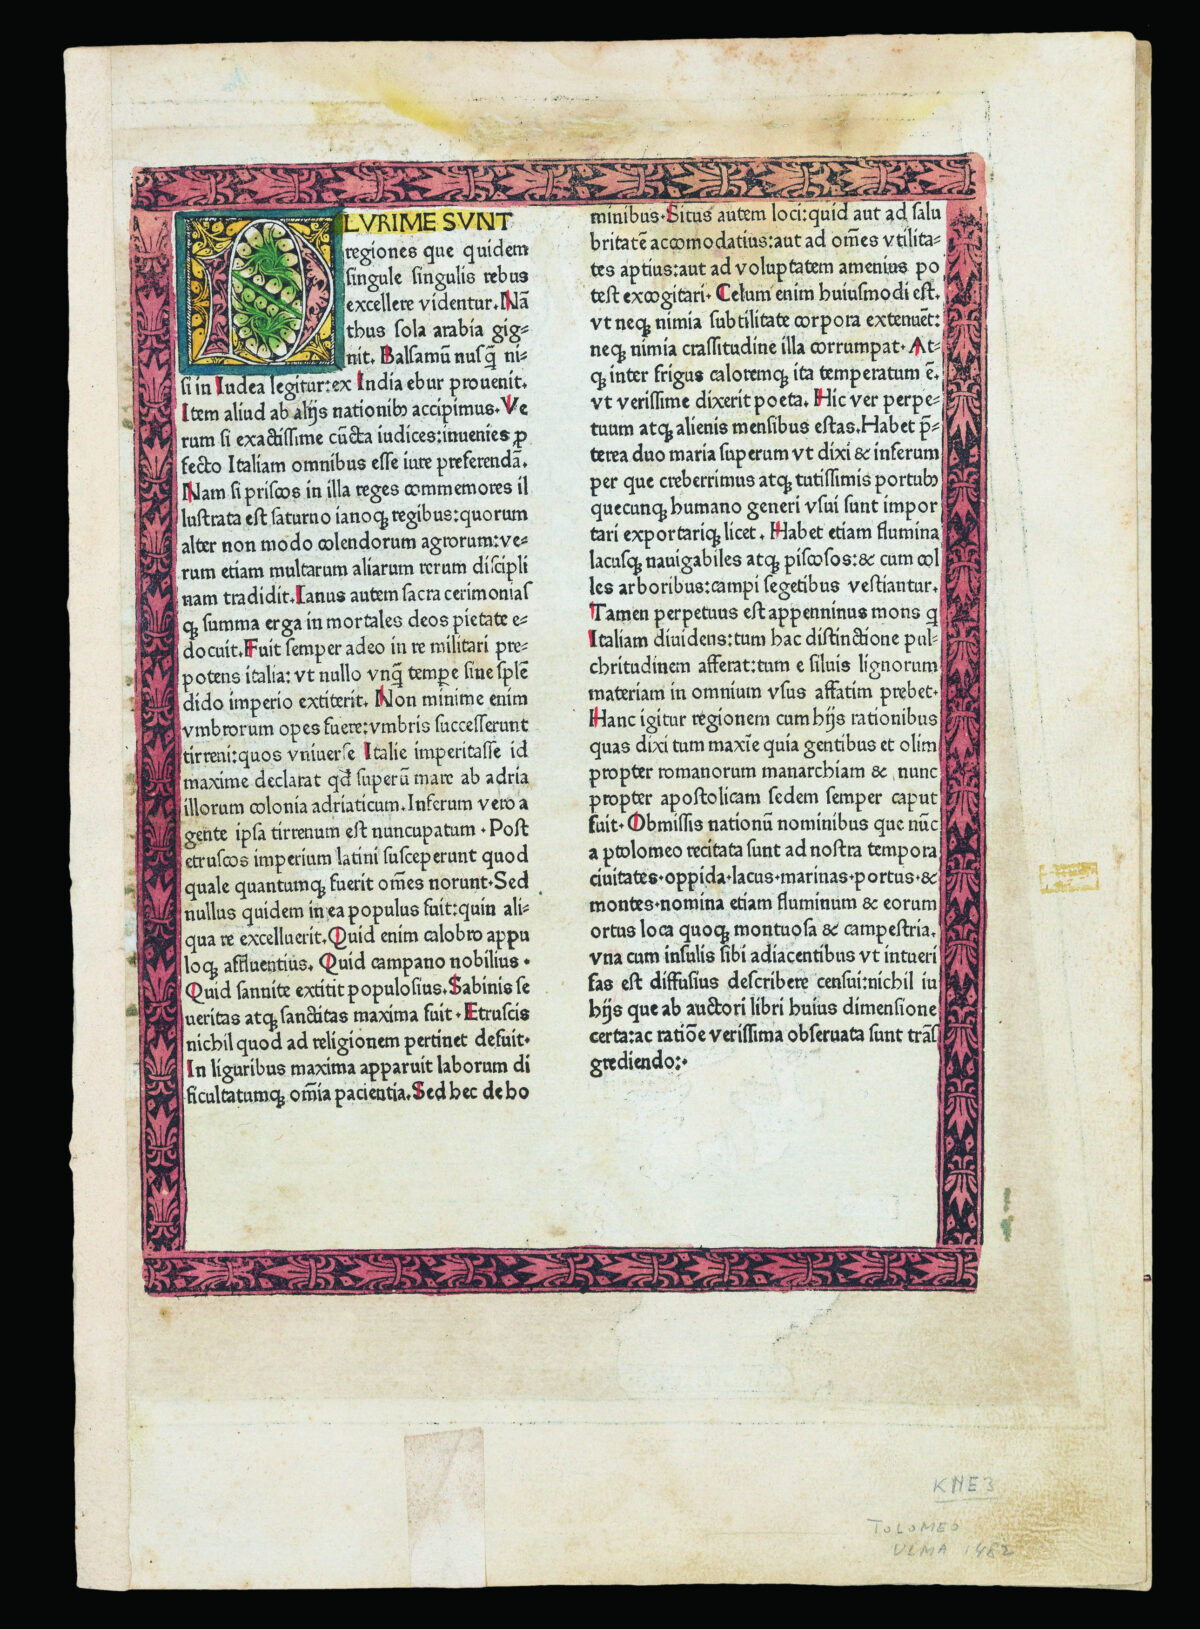 PLVRIME SVNT
regiones que quidem
singule singulis rebus
excellere videntur. Nā
thus sola arabia gig⸗
nit. Balsamū nusq̄ ni⸗
si in Iudea legitur: ex India ebur prouenit.
Item aliud ab alijs nationibꝰ accipimus. Ve
rum si exactissime cūcta iudices: inuenies ꝓ
fecto Italiam omnibus esse iure preferendā.
Nam si priscos in illa reges commemores il
lustrata est saturno ianoqꝫ regibus: quorum
alter non modo colendorum agrorum: ve⸗
rum etiam multarum aliarum rerum discipli
nam tradidit. Ianus autem sacra cerimonias
qꝫ summa erga in mortales deos pietate e⸗
docuit. Fuit semper adeo in re militari pre⸗
potens italia: vt nullo vnq̄ tempe sine splē
dido imperio extiterit. Non minime enim
vmbrorum opes fuere: vmbris successerunt
tirreni: quos vniuerse Italie imperitasse id
maxime declarat qđ superū mare ab adria
illorum colonia adriaticum. Inferum vero a
gente ipsa tirrenum est nuncupatum · Post
etruscos imperium latini susceperunt quod
quale quantumqꝫ fuerit om̄es norunt· Sed
nullus quidem in ea populus fuit: quin ali⸗
qua re excelluerit. Quid enim calobro appu
loqꝫ affluentius. Quid campano nobilius ·
Quid sannite extitit populosius. Sabinis se
ueritas atqꝫ sanctitas maxima fuit · Etruscis
nichil quod ad religionem pertinet defuit·
In liguribus maxima apparuit laborum di
ficultatumqꝫ om̄ia pacientia. Sed hec de ho
minibus· Situs autem loci: quid aut ad salu
britatē accomodatius: aut ad om̄es vtilita⸗
tes aptius: aut ad voluptatem amenius po
test excogitari· Celum enim huiusmodi est.
vt neqꝫ nimia subtilitate corpora extenuēt:
neqꝫ nimia crassitudine illa corrumpat· At⸗
qꝫ inter frigus caloremqꝫ ita temperatum ē.
vt verissime dixerit poeta. Hic ver perpe⸗
tuum atqꝫ alienis mensibus estas. Habet p̄⸗
terea duo maria superum vt dixi & inferum
per que creberrimus atqꝫ tutissimis portubꝰ
quecunqꝫ humano generi vsui sunt impor
tari exportariqꝫ licet . Habet etiam flumina
lacusqꝫ nauigabiles atqꝫ piscosos: & cum col
les arboribus: campi segetibus vestiantur.
Tamen perpetuus est appenninus mons q̄
Italiam diuidens: tum hac distinctione pul⸗
chritudinem afferat: tum e siluis lignorum
materiam in omnium vsus affatim prebet·
Hanc igitur regionem cum hijs rationibus
quas dixi tum maxīe quia gentibus et olim
propter romanorum manarchiam & nunc
propter apostolicam sedem semper caput
fuit· Obmissis nationū nominibus que nūc
a ptolomeo recitata sunt ad nostra tempora
ciuitates· oppida· lacus· marinas· portus· &
montes· nomina etiam fluminum & eorum
ortus loca quoqꝫ montuosa & campestria.
vna cum insulis sibi adiacentibus vt intueri
fas est diffusius describere censui: nichil iu
hijs que ab auctori libri huius dimensione
certa: ac ratiōe verissima obseruata sunt trās
grediendo:·
KNE3
TOLOMEO
ULMA 1482